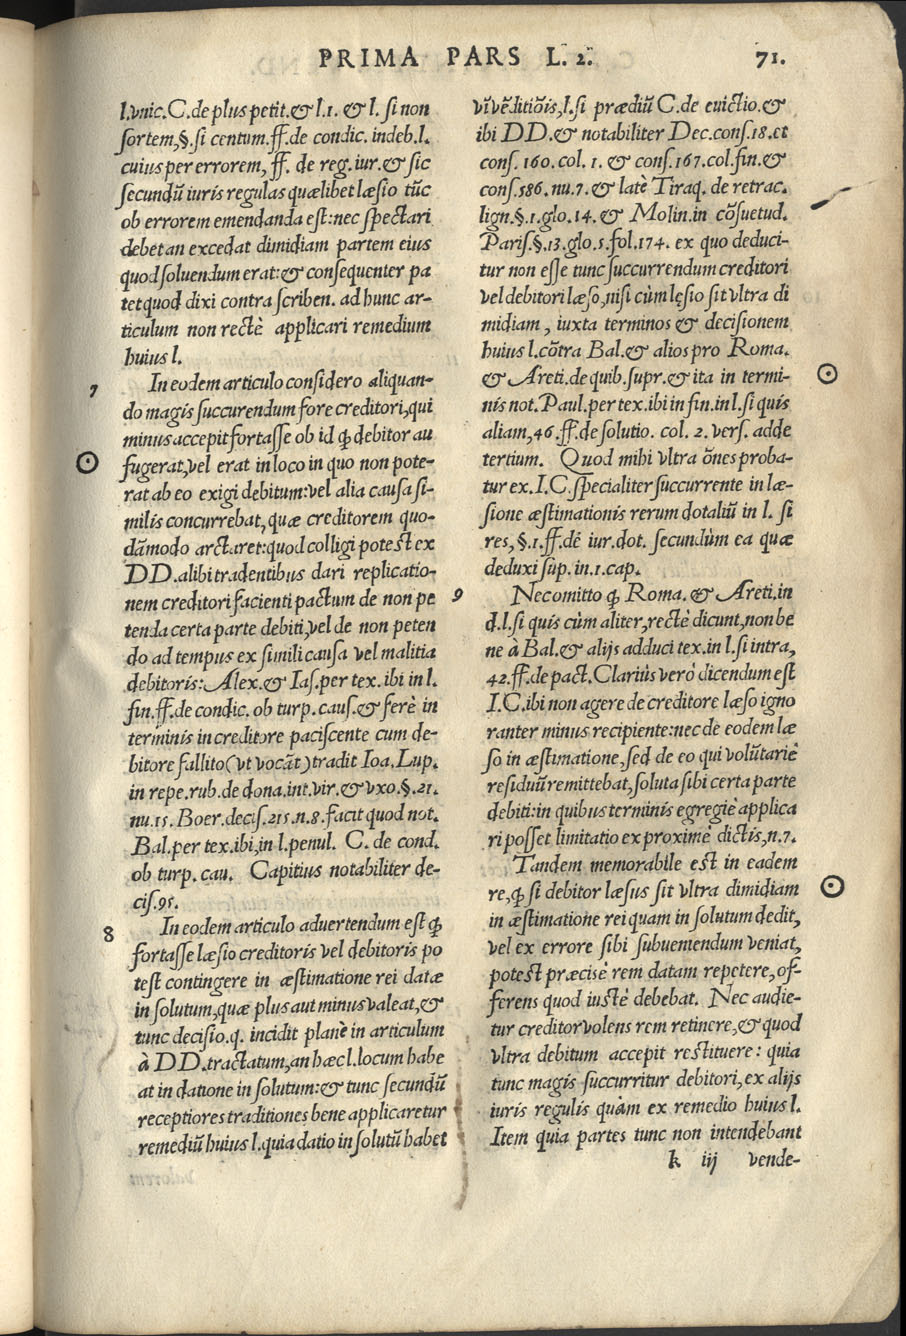 PRIMA PARS L. 2. 71.
l.vnic.C.de plus petit.& l.1. & l. si non
sortem,§.si centum.ff.de condic. indeb.l.
cuius per errorem, ff. de reg.iur.& sic
secundũ iuris regulas quælibet læsio tũc
ob errorem emendanda est:nec spectari
debet an excedat dimidiam partem eius
quod soluendum erat:& consequenter pa
tet quod dixi contra scriben. ad hunc ar-
ticulum non rectè applicari remedium
huius l.
7 In eodem articulo considero aliquan-
do magis succurendum fore creditori,qui
minus accepit fortasse ob id ꝙ debitor au
fugerat,vel erat in loco in quo non pote-
rat ab eo exigi debitum:vel alia causa si-
milis concurrebat, quæ creditorem quo-
dãmodo arctaret:quod colligi potest ex
DD.alibi tradentibus dari replicatio-
nem creditori facienti pactum de non pe
tenda certa parte debiti,vel de non peten
do ad tempus ex simili causa vel malitia
debitoris: Alex.& Ias.per tex. ibi in l.
fin.ff.de condic. ob turp. caus.& ferè in
terminis in creditore paciscente cum de-
bitore fallito(vt vocãt)tradit Ioa. Lup.
in repe.rub.de dona.int.vir.& vxo.§.21.
nu.15. Boer.decis.215.n.8.facit quod not.
Bal.per tex.ibi,in l.penul. C. de cond.
ob turp. cau. Capitius notabiliter de-
cis.95.
8 In eodem articulo aduertendum est ꝙ
fortasse læsio creditoris vel debitoris po
test contingere in æstimatione rei datæ
in solutum,quæ plus aut minus valeat,&
tunc decisio.q. incidit planè in articulum
à DD.tractatum,an hæc l.locum habe
at in datione in solutum:& tunc secundũ
receptiores traditiones bene applicaretur
remediũ huius l.quia datio in solutũ habet
vĩ vẽditiõis,l.si prædiũ C.de euictio.&
ibi DD.& notabiliter Dec.cons.18.et
cons. 160. col. 1. & cons.167.col.fin.&
cons.586.nu.7.& latè Tiraq. de retrac.
lign.§.1.glo.14.& Molin.in cõsuetud.
Paris.§.13.glo.5.fol.174. ex quo deduci-
tur non esse tunc succurrendum creditori
vel debitori læso,nisi cùm lęsio sit vltra di
midiam, iuxta terminos & decisionem
huius l.cõtra Bal.& alios pro Roma.
& Areti.de quib.supr.& ita in termi-
nis not.Paul.per tex.ibi in fin.in l.si quis
aliam,46.ff.de solutio. col. 2. vers. adde
tertium. Quod mihi vltra õnes proba-
tur ex.I.C.specialiter succurrente in læ-
sione æstimationis rerum dotaliũ in l. si
res, §.1.ff.de iur.dot. secundùm ea quæ
deduxi sup. in.1.cap.
9 Nec omitto ꝙ Roma. & Areti.in
d.l.si quis cùm aliter,rectè dicunt,non be
ne à Bal.& alijs adduci tex.in l.si intra,
42.ff.de pact. Clariùs verò dicendum est
I.C.ibi non agere de creditore læso igno
ranter minus recipiente:nec de eodem læ
so in æstimatione,sed de eo qui volũtariè
residuũ remittebat,soluta sibi certa parte
debiti:in quibus terminis egregiè applica
ri posset limitatio ex proximè dictis,n.7.
Tandem memorabile est in eadem
re,ꝙ si debitor læsus sit vltra dimidiam
in æstimatione rei quam in solutum dedit,
vel ex errore sibi subuemendum veniat,
potest præcisè rem datam repetere,of-
ferens quod iustè debebat. Nec audie-
tur creditor volens rem retinere,& quod
vltra debitum accepit restituere: quia
tunc magis succurritur debitori,ex alijs
iuris regulis quàm ex remedio huius l.
Item quia partes tunc non intendebant
k iij vende-